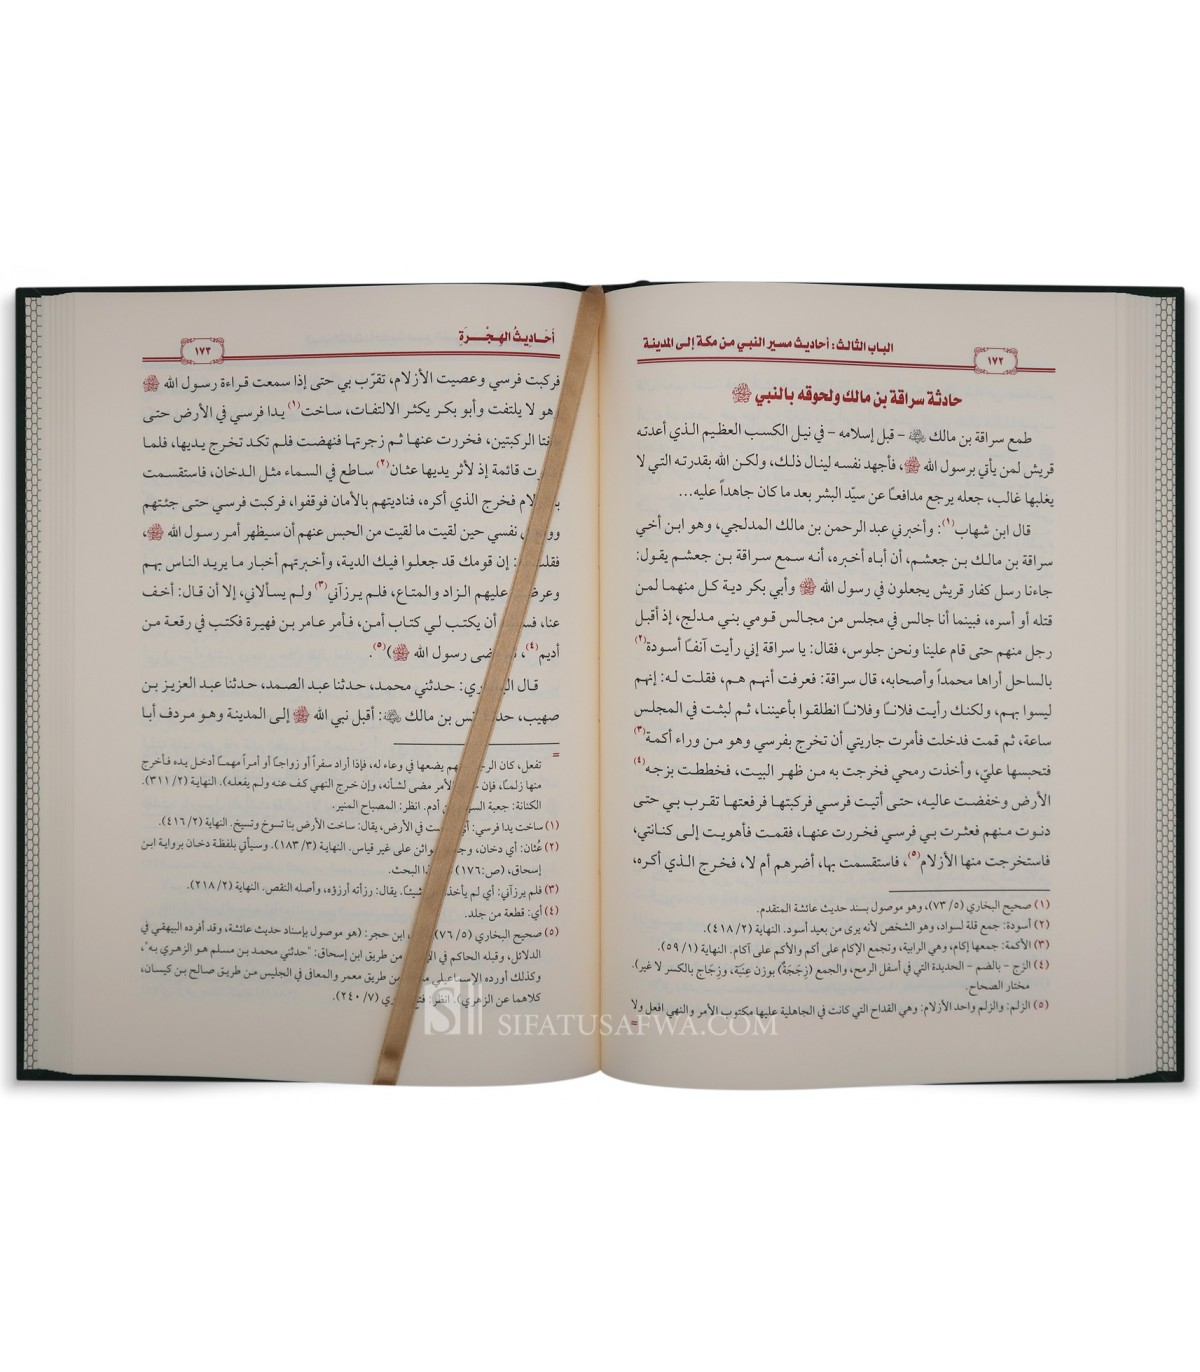 ١٧٢
الباب الثالث: أحاديث مسير النبي من مكة إلى المدينة
حادثة سراقة بن مالك ولحوقه بالنبي ﷺ
طمع سراقة بن مالك - قبل إسلامه - في نيل الكسب العظيم الذي أعدته
قريش لمن يأتي برسول الله ﷺ، فأجهد نفسه لينال ذلك، ولكن الله بقدرته التي لا
يغلبها غالب، جعله يرجع مدافعاً عن سيّد البشر بعد ما كان جاهداً عليه...
قال ابن شهاب(١): وأخبرني عبد الرحمن بن مالك المدلجي، وهو ابن أخي
سراقة بن مالك بن جعشم، أن أباه أخبره، أنه سمع سراقة بن جعشم يقول:
جاءنا رسل كفار قريش يجعلون في رسول الله ﷺ وأبي بكر دية كل منهما لمن
قتله أو أسره، فبينما أنا جالس في مجلس من مجالس قومي بني مدلج، إذ أقبل
رجل منهم حتى قام علينا ونحن جلوس، فقال: يا سراقة إني رأيت آنفاً أسودة(٢)
بالساحل أراها محمداً وأصحابه، قال سراقة: فعرفت أنهم هم، فقلت له: إنهم
ليسوا بهم، ولكنك رأيت فلانًا وفلانًا انطلقوا بأعيننا، ثم لبثت في المجلس
ساعة، ثم قمت فدخلت فأمرت جاريتي أن تخرج بفرسي وهو من وراء أكمة(٣)
فتحبسها عليّ، وأخذت رمحي فخرجت به من ظهر البيت، فخططت بزجه(٤)
الأرض وخفضت عاليه، حتى أتيت فرسي فركبتها فرفعتها تقرب بي حتى
دنوت منهم فعثرت بي فرسي فخررت عنها، فقمت فأهويت إلى كنانتي،
فاستخرجت منها الأزلام(٥)، فاستقسمت بها، أضرهم أم لا، فخرج الذي أكره،
(١) صحيح البخاري (٧٣/٥)، وهو موصول بسند حديث عائشة المتقدم.
(٢) أسودة: جمع قلة لسواد، وهو الشخص لأنه يرى من بعيد أسود. النهاية (٤١٨/٢).
(٣) الأكمة: جمعها إكام، وهي الرابية، وتجمع الإكام على أكم والأكم على آكام. النهاية (٥٩/١).
(٤) الزج - بالضم - الحديدة التي في أسفل الرمح، والجمع (زِجَجَةٌ) بوزن عِنَبَة، وزِجَاج بالكسر لا غير).
مختار الصحاح.
(٥) الزلم: والزلم واحد الأزلام: وهي القداح التي كانت في الجاهلية عليها مكتوب الأمر والنهي افعل ولا
=
أَحَادِيثُ الهِجْـــرَةِ
١٧٣
فركبت فرسي وعصيت الأزلام، تقرّب بي حتى إذا سمعت قراءة رسول الله ﷺ
وهو لا يلتفت وأبو بكر يكثر الالتفات، ساخت(١) يدا فرسي في الأرض حتى
الركبتين، فخررت عنها ثم زجرتها فنهضت فلم تكد تخرج يديها، فلما
قائمة إذ لأثر يديها عثان(٢) ساطع في السماء مثل الدخان، فاستقسمت
فخرج الذي أكره، فناديتهم بالأمان فوقفوا، فركبت فرسي حتى جئتهم
نفسي حين لقيت ما لقيت من الحبس عنهم أن سيظهر أمر رسول الله ﷺ،
إن قومك قد جعلوا فيك الدية، وأخبرتهم أخبار ما يريد الناس بهم
عليهم الزاد والمتاع، فلم يرزآني(٣) ولم يسألاني، إلا أن قال: أخف
عنا، أن يكتب لي كتاب أمن، فأمر عامر بن فهيرة فكتب في رقعة من
أديم(٤)، رسول الله ﷺ)(٥).
قال حدثني محمد، حدثنا عبد الصمد، حدثنا عبد العزيز بن
صهيب، بن مالك: أقبل نبي الله ﷺ إلى المدينة وهو مردف أبا
=
تفعل، كان يضعها في وعاء له، فإذا أراد سفراً أو زواجاً أو أمراً مهماً أدخل يده فأخرج
منها زلماً، فإن مضى لشأنه، وإن خرج النهي كف عنه ولم يفعله). النهاية (٣١١/٢).
الكنانة: جعبة أدم. انظر: المصباح المنير.
(١) ساخت يدا فرسي: في الأرض، يقال: ساخت الأرض بنا تسوخ وتسيخ. النهاية (٤١٦/٢).
(٢) عُثان: أي دخان، على غير قياس. النهاية (١٨٣/٣). وسيأتي بلفظة دخان برواية ابن
إسحاق، (ص:١٧٦) البحث.
(٣) فلم يرزآني: أي لم يقال: رزأته أرزؤه، وأصله النقص. النهاية (٢١٨/٢).
(٤) أي: قطعة من جلد.
(٥) صحيح البخاري (٧٦/٥) ابن حجر: (هو موصول بإسناد حديث عائشة، وقد أفرده البيهقي في
الدلائل، وقبله الحاكم في من طريق ابن إسحاق: "حدثني محمد بن مسلم هو الزهري به"،
وكذلك أورده الإسماعيلي من طريق معمر والمعافى في الجليس من طريق صالح بن كيسان،
كلاهما عن الزهري). انظر: (٢٤٠/٧).
SIFATUSAFWA.COM